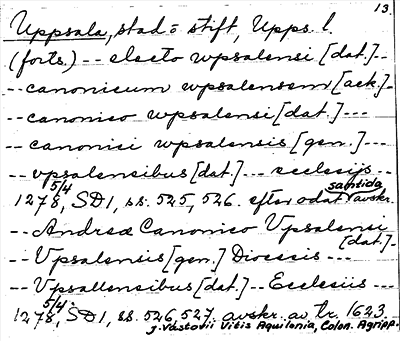 13.
Uppsala, stad o stift, Upps. l.
(forts.) -- electo wpsalensi [dat.]--
-- canonicum wpsalensem [ack.]-
-- canonico wpsalensi [dat.]---
-- canonici wpsalensis [gen.]---
-- vpsalensibus [dat.]-- ecclesijs--
1278 5/4, SD1, ss. 525, 526. efter odat samtida avskr.
-- Andreæ Canonico Vpsalensi [dat.]-
-- Vpsalensis [gen.] Diocesis ---
-- Vpsallensibus [dat.]-- Ecclesiis ---
1278 5/4, SD1, ss. 526, 527. avskr. av tr. 1623
J. Vastovii Vitis Aquilonia, Colon. Agripp.